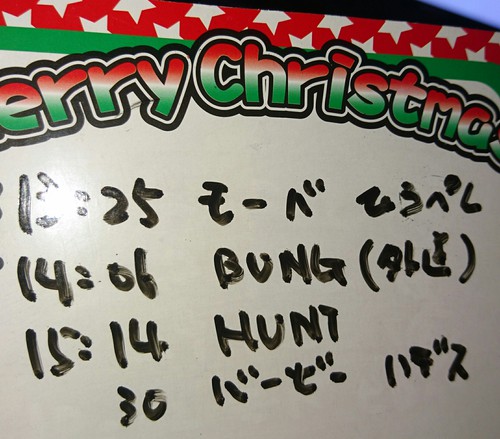 Merry Christmas
13:25 モーバ ひらペし
14:06 BUNG (外道)
15:14 HUNT
30 バービー ハデス